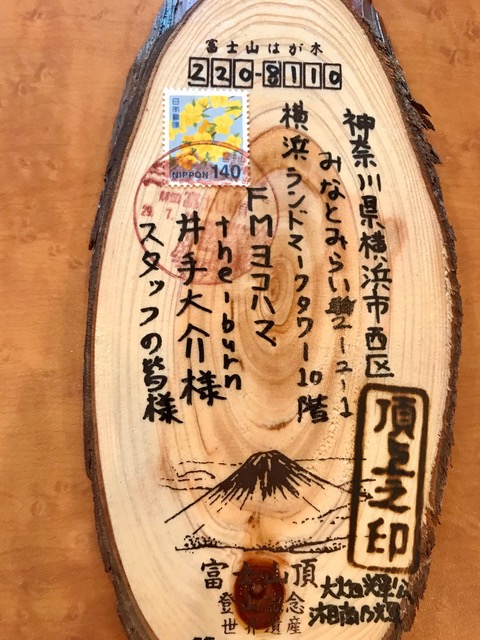 富士山はが木
220-8110
日本郵便
NIPPON 140
神奈川県横浜市西区
みなとみらい2-2-1
横浜ランドマークタワー10階
FMヨコハマ
the burn
井手大介様
スタッフの皆様
頂上之印
富士山頂
登山記念
世界遺産